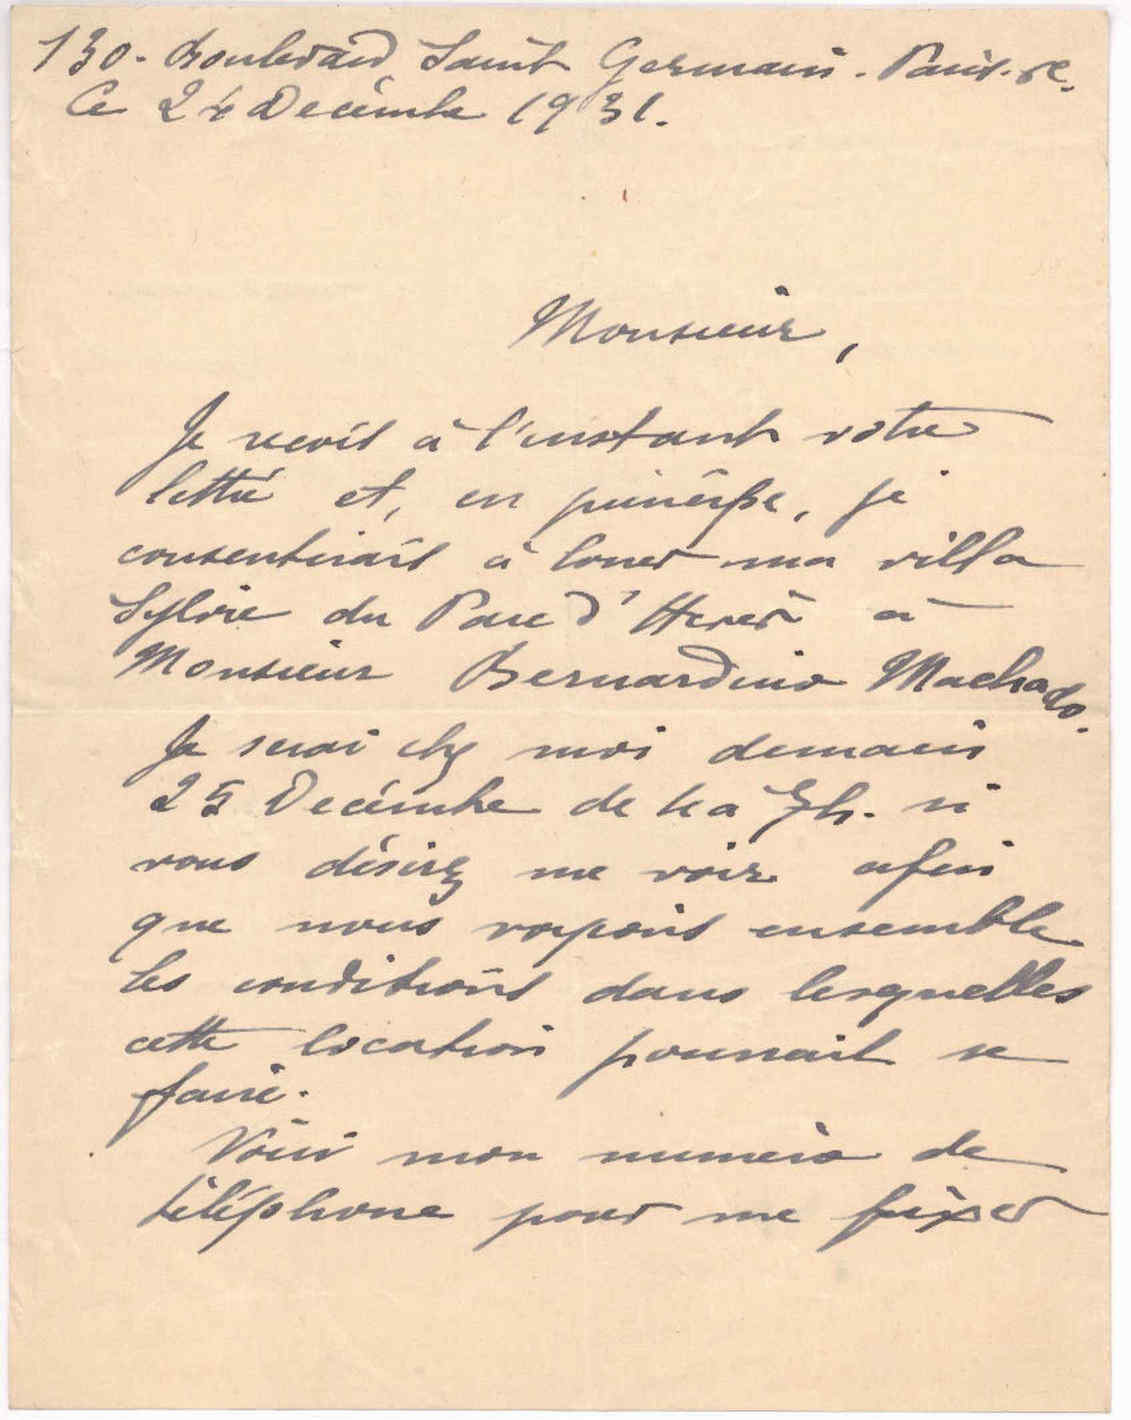 130. Boulevard Saint Germain. Paris. 6e.
Ce 24 Décembre 1931.
Monsieur,
Je reçois à l'instant votre
lettre et, en principe, je
consentirais à louer ma villa
Sylvie du Parc d'Hendaye à
Monsieur Bernardino Machado.
Je serai chez moi demain
25 Décembre de 4 à 7h. si
vous désirez me voir afin
que nous voyons ensemble
les conditions dans lesquelles
cette location pourrait se
faire.
Voici mon numéro de
téléphone pour me fixer